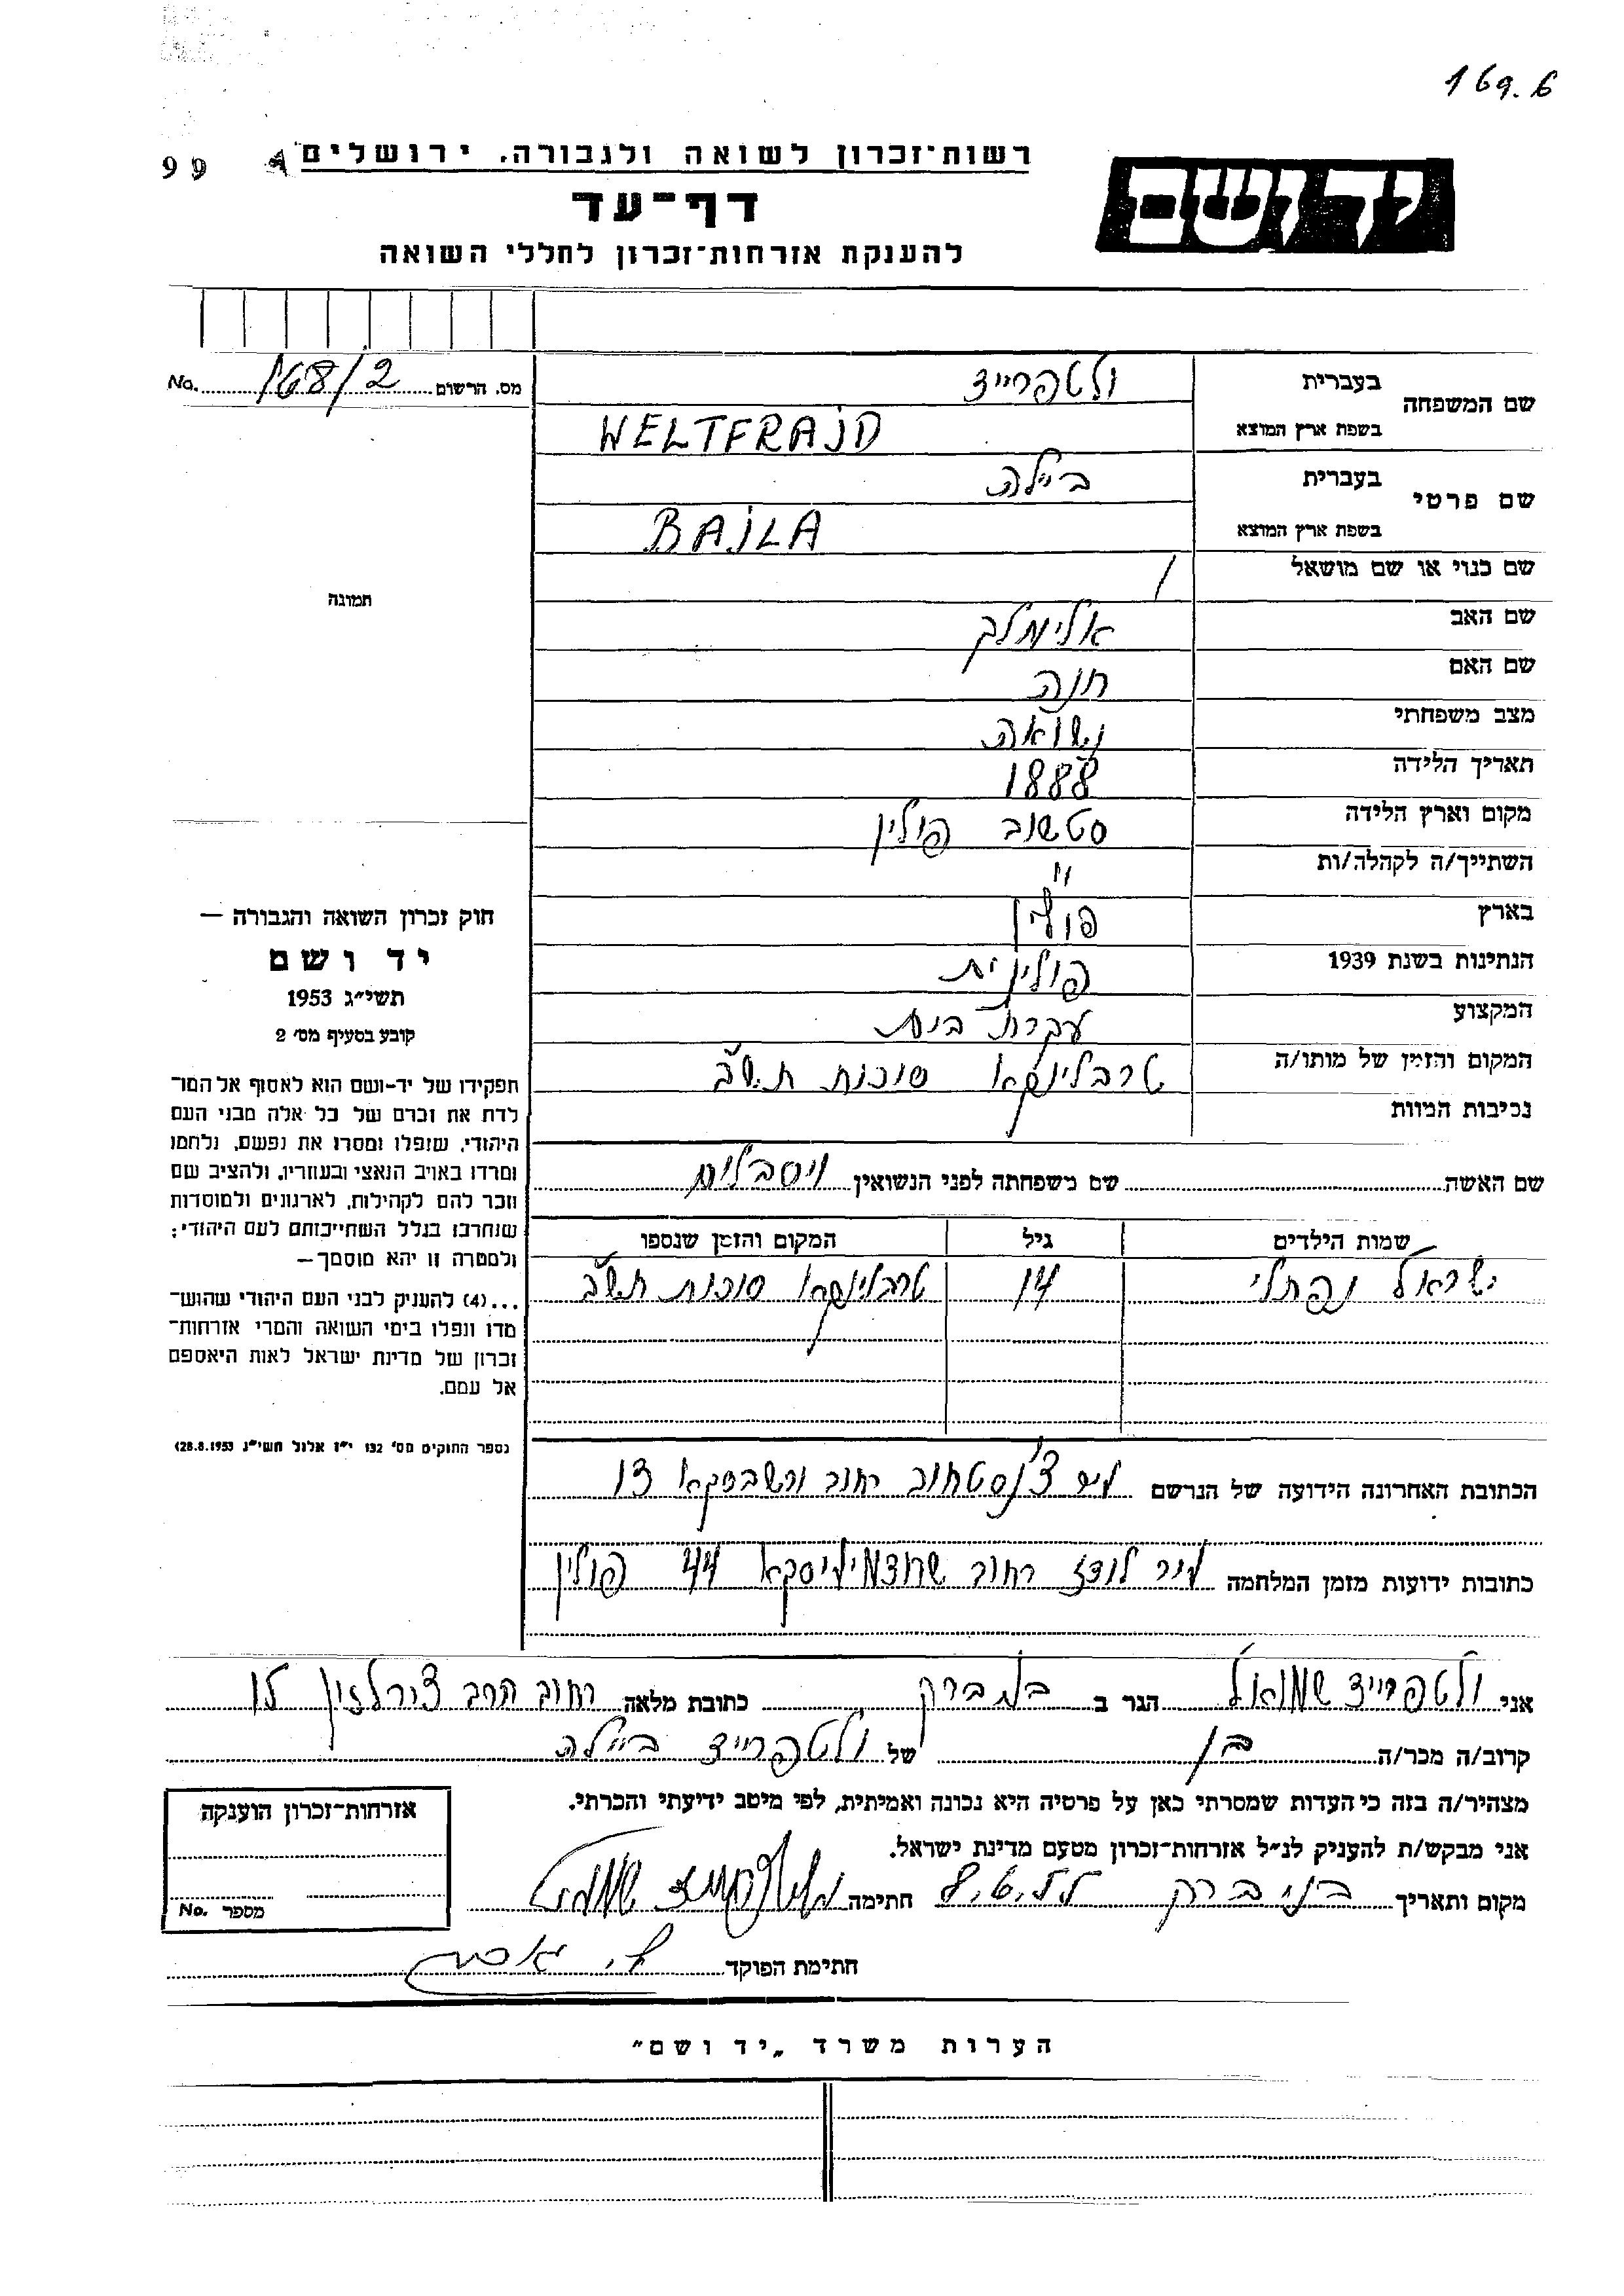 169.6
99
רשות־זכרון לשואה ולגבורה, ירושלים
יד ושם
דף־עד
להענקת אזרחות־זכרון לחללי השואה
מס. הרשום 168/2 No.
שם המשפחה
בעברית ולטפרייד
בשפת ארץ המוצא WELTFRAJD
שם פרטי
בעברית ביילה
בשפת ארץ המוצא BAJLA
שם כנוי או שם מושאל /
שם האב אלימלך
שם האם חנה
מצב משפחתי נשואה
תאריך הלידה 1888
מקום וארץ הלידה סטשוב פולין
השתייך/ה לקהלה/ות "
בארץ פולין
הנתינות בשנת 1939 פולינית
המקצוע עקרת בית
המקום והזמן של מותו/ה טרבלינקא סוכות תש"ב
נסיבות המוות
שם האשה שם משפחתה לפני הנשואין
שמות הילדים גיל המקום והזמן שנספו
ישראל נפתלי 14 טרבלינקא סוכות תש"ב
הכתובת האחרונה הידועה של הנרשם צ'נסטחוב רחוב ורשבסקא 13
כתובות ידועות מזמן המלחמה לודז רחוב 44 פולין
תמונה
חוק זכרון השואה והגבורה —
יד ושם
תשי״ג 1953
קובע בסעיף מס׳ 2
תפקידו של יד-ושם הוא לאסוף אל המו־
לדת את זכרם של כל אלה מבני העם
היהודי, שנפלו ומסרו את נפשם, נלחמו
ומרדו באויב הנאצי ובעוזריו, ולהציב שם
וזכר להם לקהילות, לארגונים ולמוסדות
שנחרבו בגלל השתייכותם לעם היהודי;
ולמטרה זו יהא מוסמך —
...(4) להעניק לבני העם היהודי שהוש־
מדו ונפלו בימי השואה והמרי אזרחות־
זכרון של מדינת ישראל לאות היאספם
אל עמם.
(ספר החוקים מס׳ 132 י״ז אלול תשי״ג 28.8.1953)
אני ולטפרייד שמואל הגר ב בני ברק כתובת מלאה רחוב הרב
קרוב/ה מכר/ה בן של ולטפרייד ביילה
מצהיר/ה בזה כי העדות שמסרתי כאן על פרטיה היא נכונה ואמיתית, לפי מיטב ידיעתי והכרתי.
אני מבקש/ת להעניק לנ״ל אזרחות־זכרון מטעם מדינת ישראל.
מקום ותאריך בני ברק חתימה ולטפרייד שמואל
חתימת הפוקד
אזרחות־זכרון הוענקה
מספר No.
הערות משרד „יד ושם״